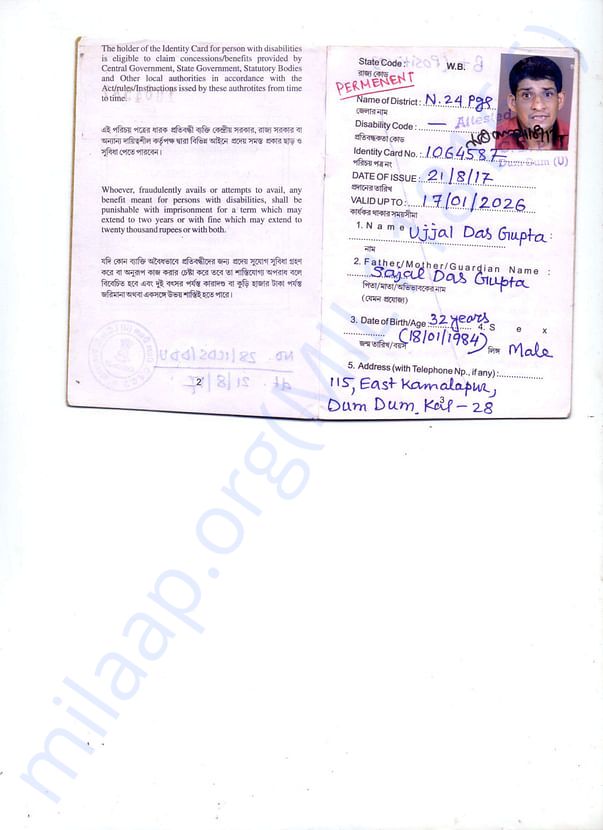 The holder of the Identity Card for person with disabilities
is eligible to claim concessions/benefits provided by
Central Government, State Government, Statutory Bodies
and Other local authorities in accordance with the
Act/rules/Instructions issed by these authrotites from time
to time.
এই পরিচয় পত্রের ধারক প্রতিবন্ধী ব্যক্তি কেন্দ্রীয় সরকার, রাজ্য সরকার বা
অন্যান্য দায়িত্বশীল কর্তৃপক্ষ দ্বারা বিভিন্ন আইনে প্রদেয় সমস্ত প্রকার ছাড় ও
সুবিধা পেতে পারবেন।
Whoever, fraudulently avails or attempts to avail, any
benefit meant for persons with disabilities, shall be
punishable with imprisonment for a term which may
extend to two years or with fine which may extend to
twenty thousand rupees or with both.
যদি কোন ব্যক্তি অবৈধভাবে প্রতিবন্ধীদের জন্য প্রদেয় সুযোগ সুবিধা গ্রহণ
করে বা অনুরূপ কাজ করার চেষ্টা করে তবে তা শাস্তিযোগ্য অপরাধ বলে
বিবেচিত হবে এবং দুই বৎসর পর্যন্ত কারাদন্ড বা কুড়ি হাজার টাকা পর্যন্ত
জরিমানা অথবা একসঙ্গে উভয় শাস্তিই হতে পারে।
2
State Code : W.B.
রাজ্য কোড
PERMENENT
Name of District : N. 24 Pgs
জেলার নাম
Disability Code : —
Attested
প্রতিবন্ধকতা কোড
Identity Card No. : 1064587
Dum Dum (U)
পরিচয় পত্র নং
DATE OF ISSUE : 21/8/17
প্রদানের তারিখ
VALID UP TO : 17/01/2026
কার্যকর থাকার সময়সীমা
1. Name : Ujjal Das Gupta
নাম
2. Father/Mother/Guardian Name :
Sajal Das Gupta
পিতা/মাতা/অভিভাবকের নাম
(যেমন প্রযোজ্য)
3. Date of Birth/Age : 32 years 4. Sex
(18/01/1984)
জন্ম তারিখ/বয়স লিঙ্গ Male
5. Address (with Telephone Np., if any) :
115, East Kamalapur,
Dum Dum, Kol - 28
3
milaap.org